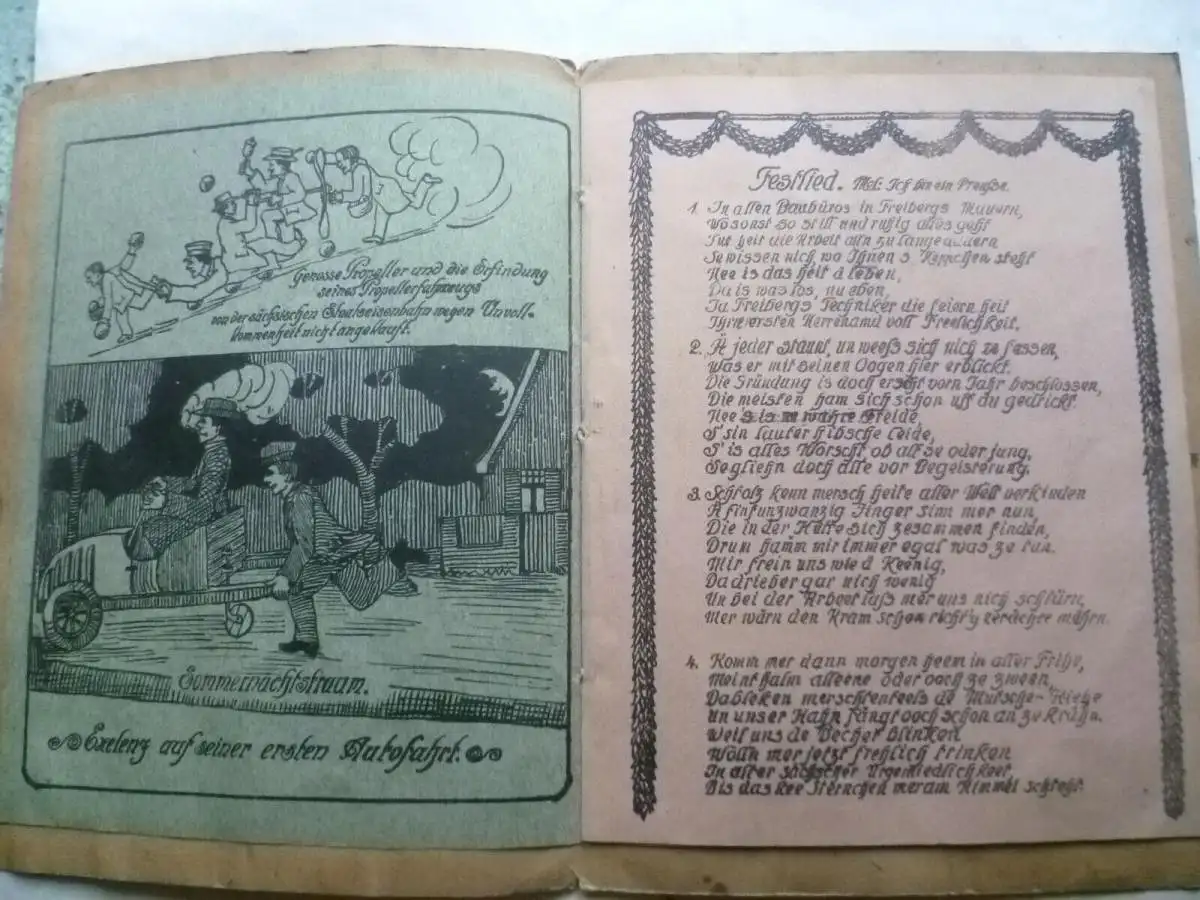 Genosse Propeller und die Erfindung
seines Propellerfahrzeugs
von der sächsischen Staatseisenbahn wegen Unvoll-
kommenheit nicht angekauft.
Sommernachtstraum.
Exelenz auf seiner ersten Autofahrt.
Festlied. Mel: Ich bin ein Preuße.
1. In allen Baubüros in Freibergs Mauern,
Wo sonst so still und ruhig alles geht
Tut heit die Arbeit alln zu lange
Se wissen nich, wo Ihnen s Herrchen steht
Nee is das heit ä leben,
Da is was los, nu eben,
Ja Freibergs Techniker die feiern heit
Ihrn ersten Herrenamd voll Freelichkeit.
2. Ä jeder staunt, un weeß sich nich ze fassen,
Was er mit seinen Oogen hier erblickt.
Die Gründung is doch erscht vorn Jahr beschlossen,
Die meisten ham sich schon uff du gedrickt.
Nee s is ne wahre Freide,
S' sin lauter hibsche Leide,
S' is alles Worscht ob alt se oder jung,
Se gliehn doch alle vor Begeisterung.
3. Schtolz kenn mersch heite aller Welt verkinden
Ä finfunzwanzig Jinger sinn mer nun,
Die in der Hütte sich zesammen finden,
Drum hamm mir immer egal was ze tun.
Mir frein uns wie d Keenig,
Dadrieber gar nich wenig
Un bei der Arbeet laß mer uns nich schtürn,
Mer wärn den Kram schon richt'g
4. Komm mer dann morgen heem in aller Frihe,
Meint halm alleene oder ooch ze zween,
Da bleken merschtenteels de Mutsche-Kiehe
Un unser Hahn fängt ooch schon an ze krähn.
Weil uns de Becher blinken
Wolln mer jetzt frehlich trinken
In alter sächscher Urgemiedlichkeet
Bis das kee Sternchen mer am Himmel schteht.